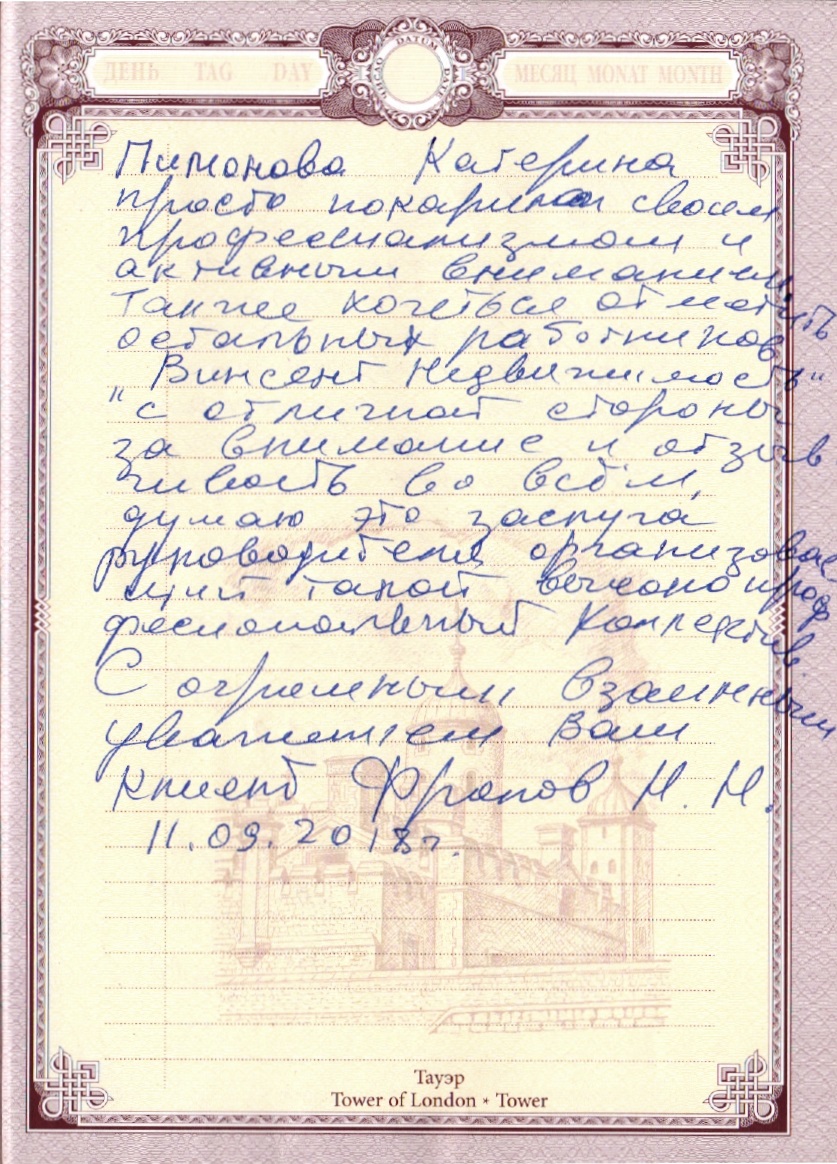 ДЕНЬ TAG DAY
DATUM
МЕСЯЦ MONAT MONTH
Пимонова Катерина
просто покарила своем
професеианизмом и
активным вниманием,
также хочеться отметить
остальных работников
"Винсент Недвижимость"
с отличной стороны
за внимание и отзыв
чивость во всём,
думаю это заслуга
руководителя организовав
ший такой высоко проф
фесиональный Коллектив.
С огромным взаимным
уважением Ваш
клиент Фролов Н. Н.
11.09.2018г.
Тауэр
Tower of London * Tower